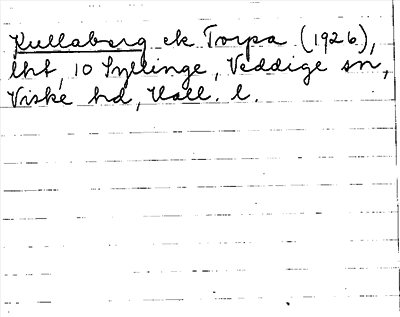 Kullaberg ek Torpa (1926),
lht, 10 Syllinge, Veddige sn,
Viske hd, Hall. l.